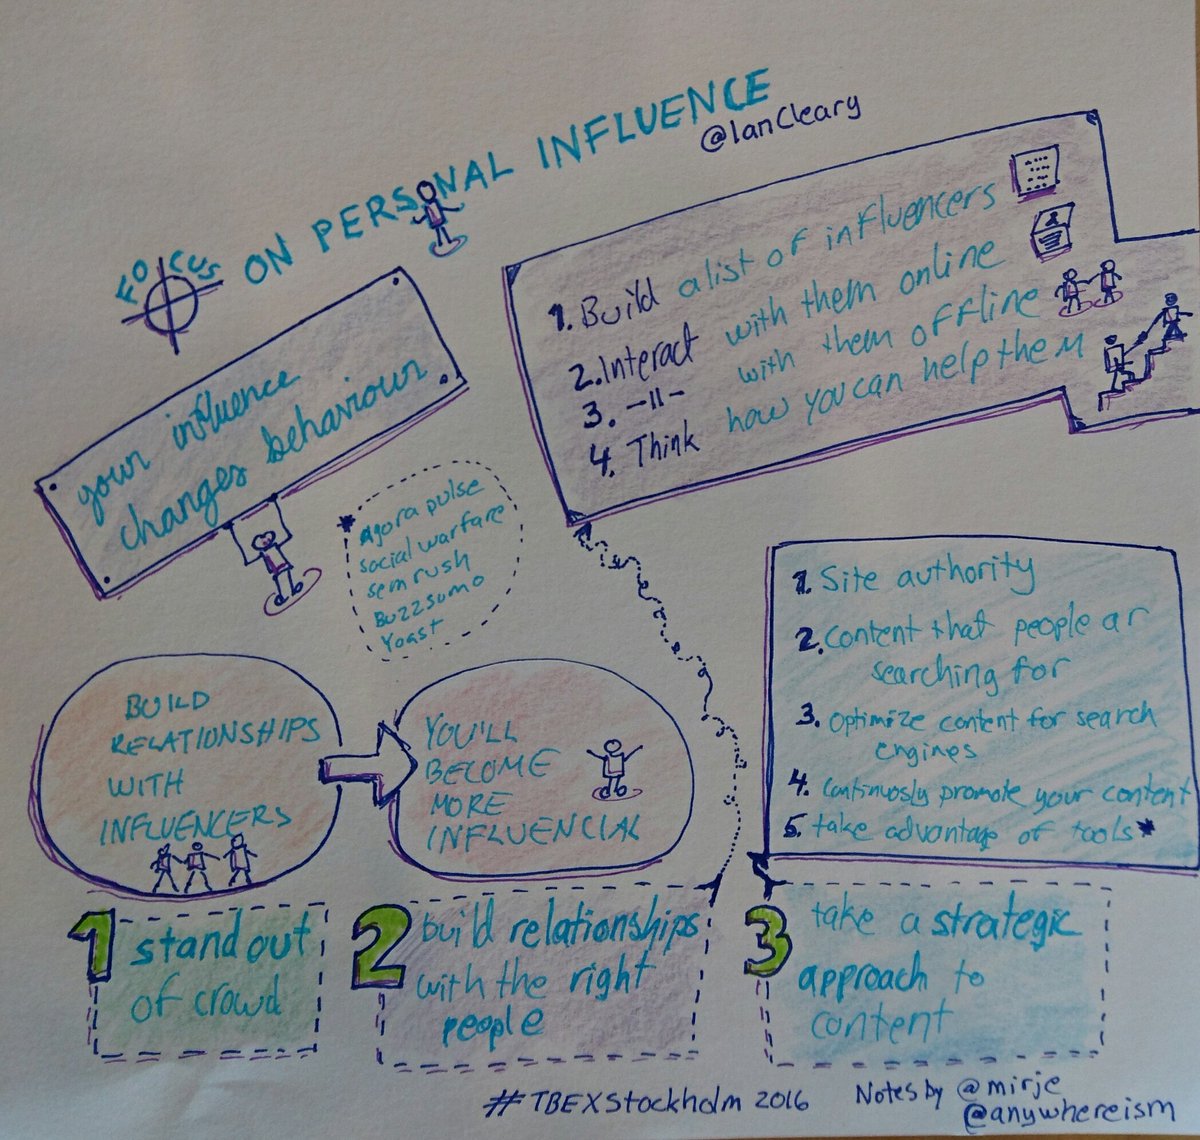 FOCUS ON PERSONAL INFLUENCE
@IanCleary
your influence
changes behaviour
1. Build a list of influencers
2. Interact with them online
3. -11- with them offline
4. Think how you can help them
* Agora pulse
social warfare
sem rush
Buzzsumo
Yoast
BUILD
RELATIONSHIPS
WITH
INFLUENCERS
YOU'LL
BECOME
MORE
INFLUENCIAL
1. Site authority
2. Content that people ar
searching for
3. Optimize content for search
engines
4. Continuosly promote your content
5. take advantage of tools*
1 stand out
of crowd
2 build relationships
with the right
people
3 take a strategic
approach to
content
#TBEXStockholm 2016
Notes by @mirje
@anywhereism